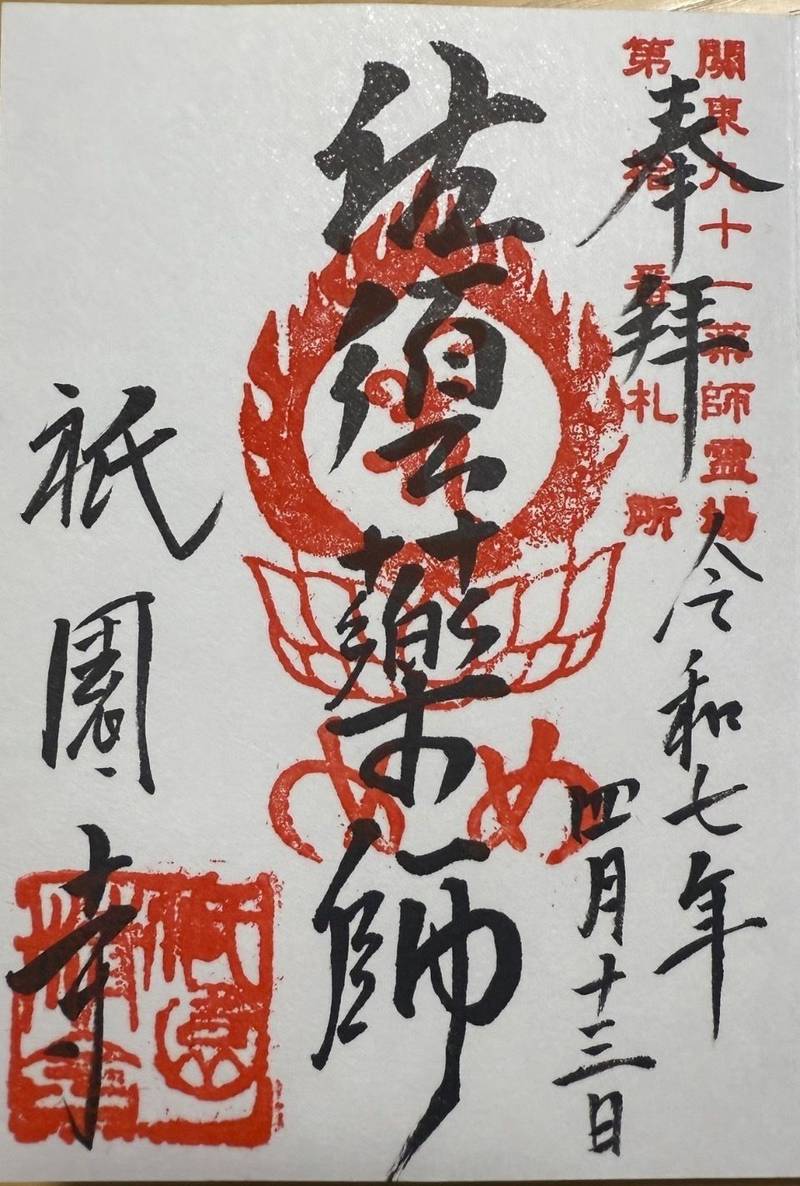 関東九十一薬師霊場
第拾番札所
奉拝
令和七年
四月十三日
佐須藥師
めめ
祇園寺